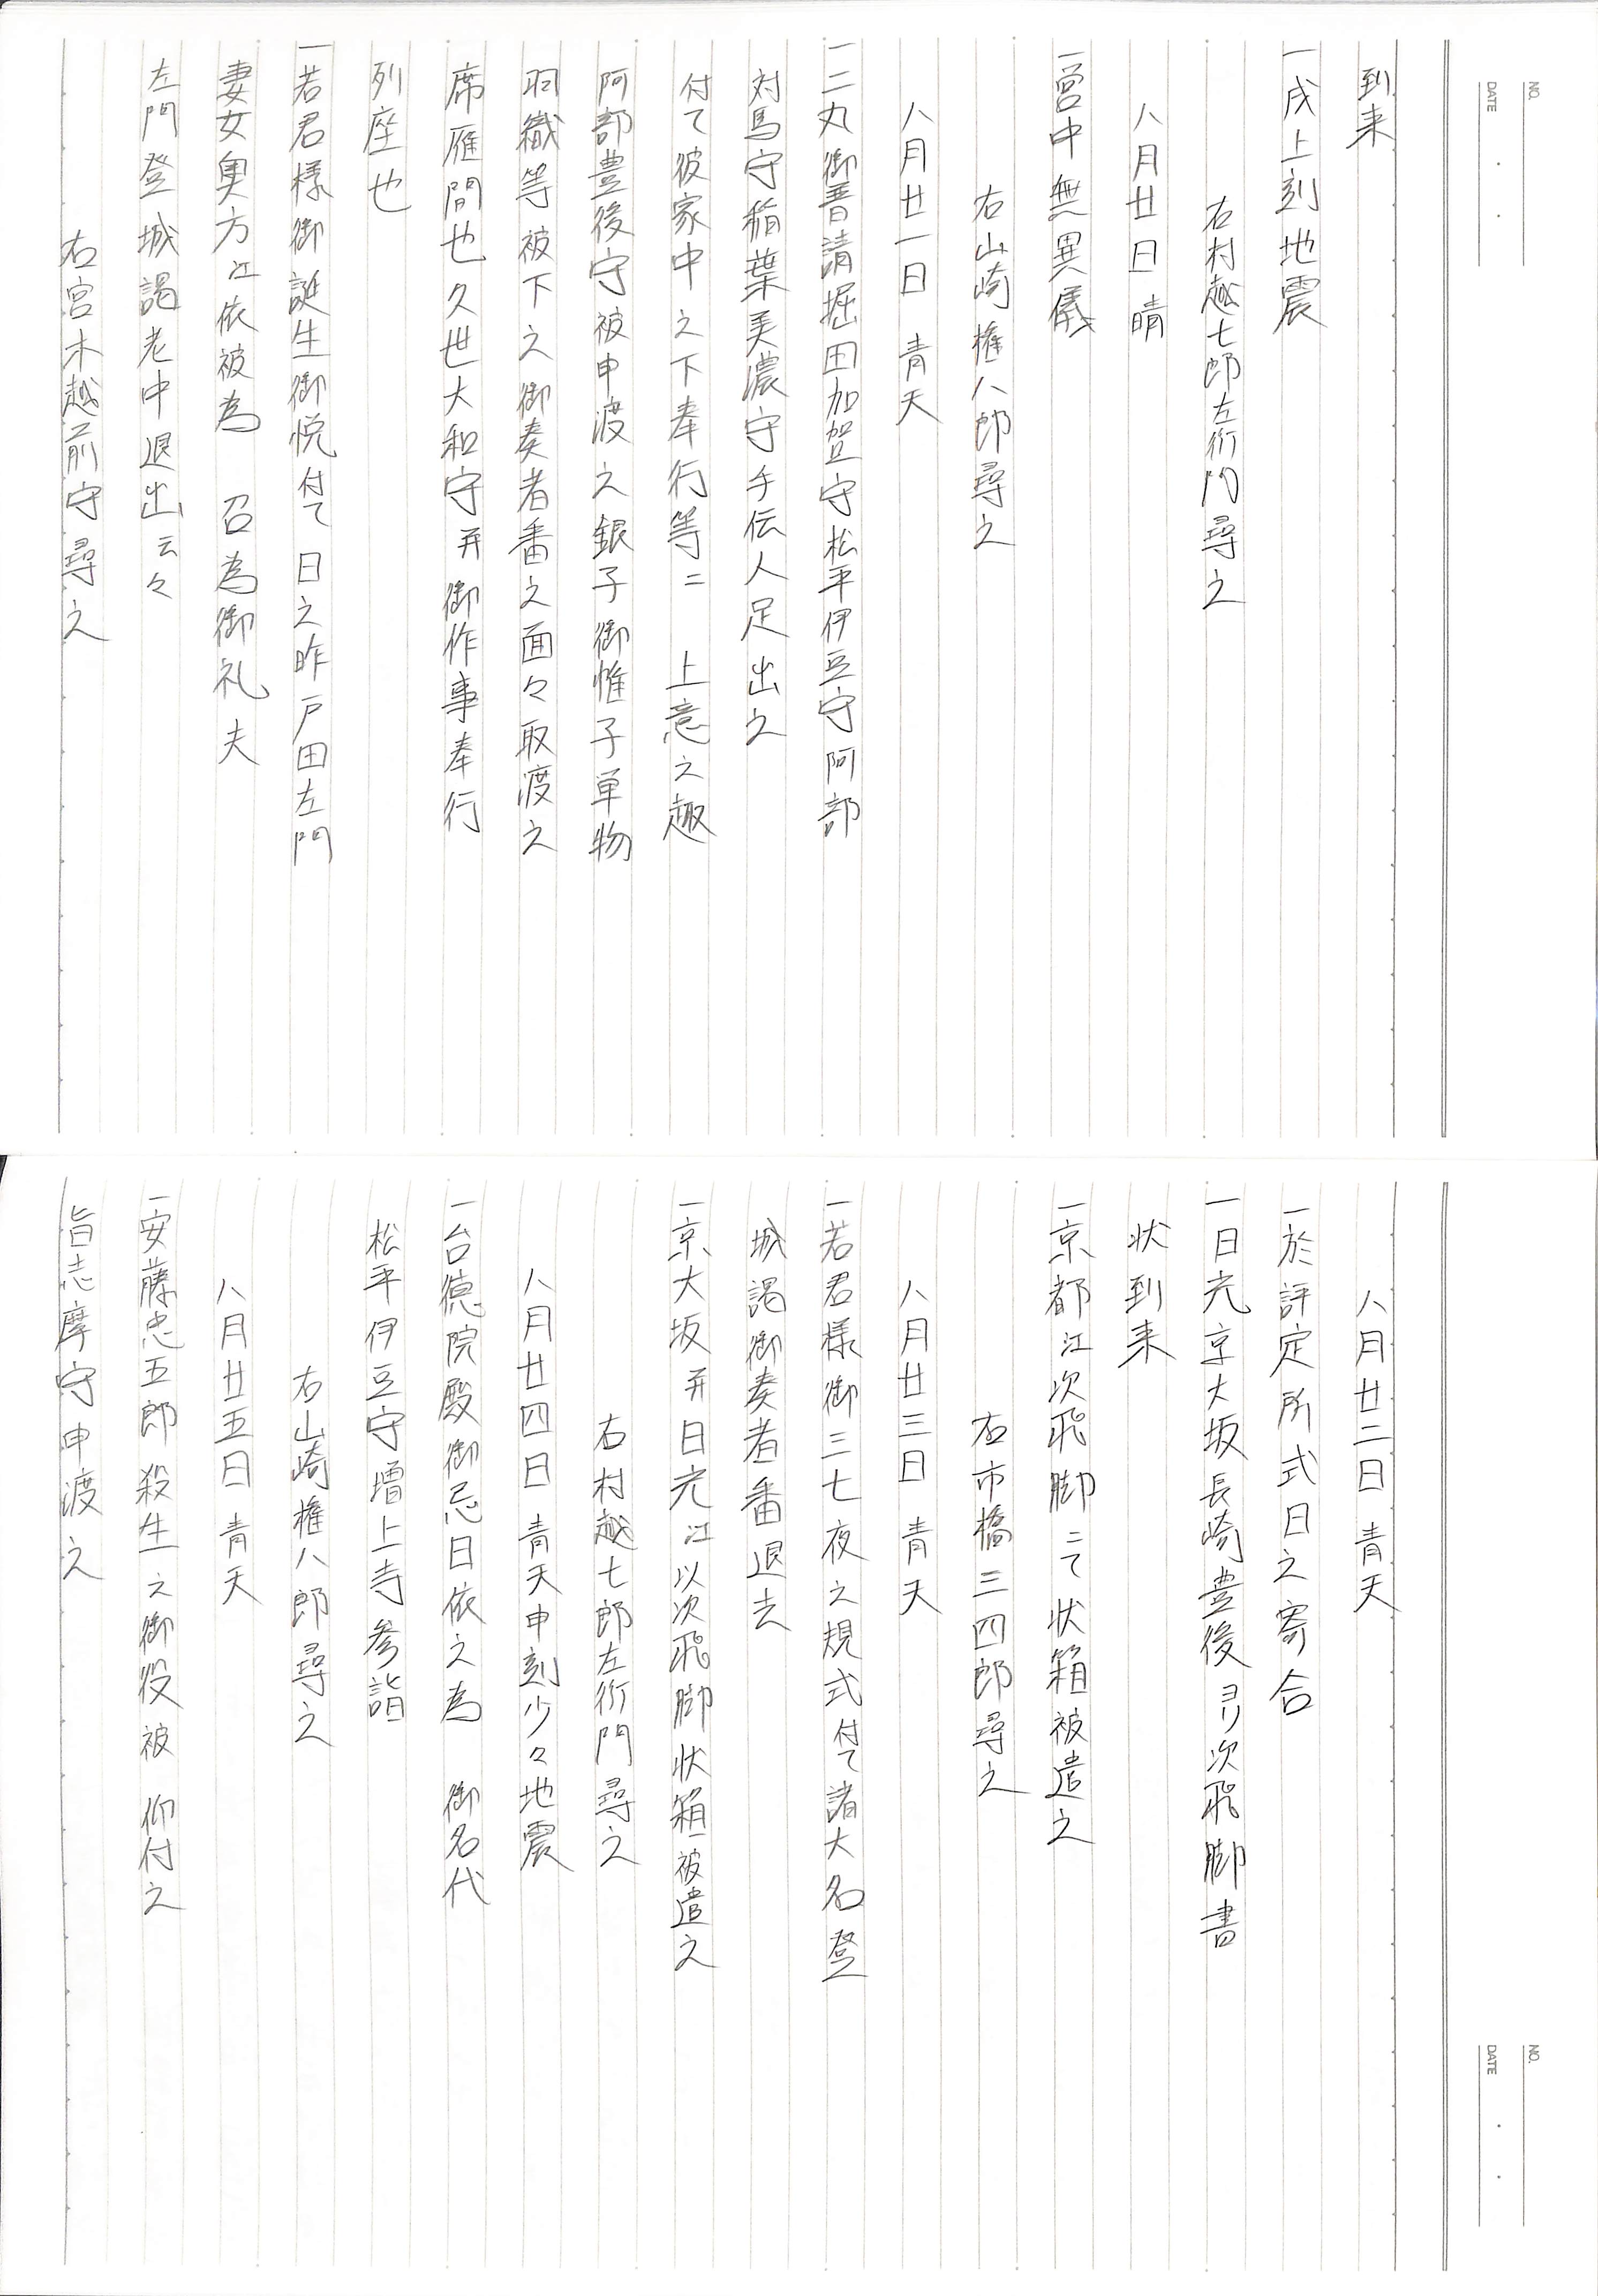 NO.
DATE
到来
一戌上刻地震
右村越七郎左衛門尋之
八月廿日 晴
一営中無異儀
右山崎権八郎尋之
八月廿一日 青天
一二丸御普請堀田加賀守松平伊豆守阿部
対馬守稲葉美濃守手伝人足出之
付て彼家中之下奉行等ニ 上意之趣
阿部豊後守被申渡之銀子御惟子単物
羽織等被下之御奏者番之面々取渡之
席雁間也久世大和守并御作事奉行
列座也
一若君様御誕生御悦付て日之昨戸田左門
妻女奥方江依被為 召為御礼夫
左門登城謁老中退出云々
右宮木越前守尋之
NO.
DATE
八月廿二日 青天
一於評定所式日之寄合
一日光京大坂長崎豊後ヨリ次飛脚書
状到来
一京都江次飛脚ニて状箱被遣之
右市橋三四郎尋之
八月廿三日 青天
一若君様御三七夜之規式付て諸大名登
城謁御奏者番退去
一京大坂并日光江以次飛脚状箱被遣之
右村越七郎左衛門尋之
八月廿四日 青天申刻少々地震
一台徳院殿御忌日依之為 御名代
松平伊豆守増上寺参詣
右山崎権八郎尋之
八月廿五日 青天
一安藤忠五郎殺生之御役被 仰付之
旨志摩守申渡之